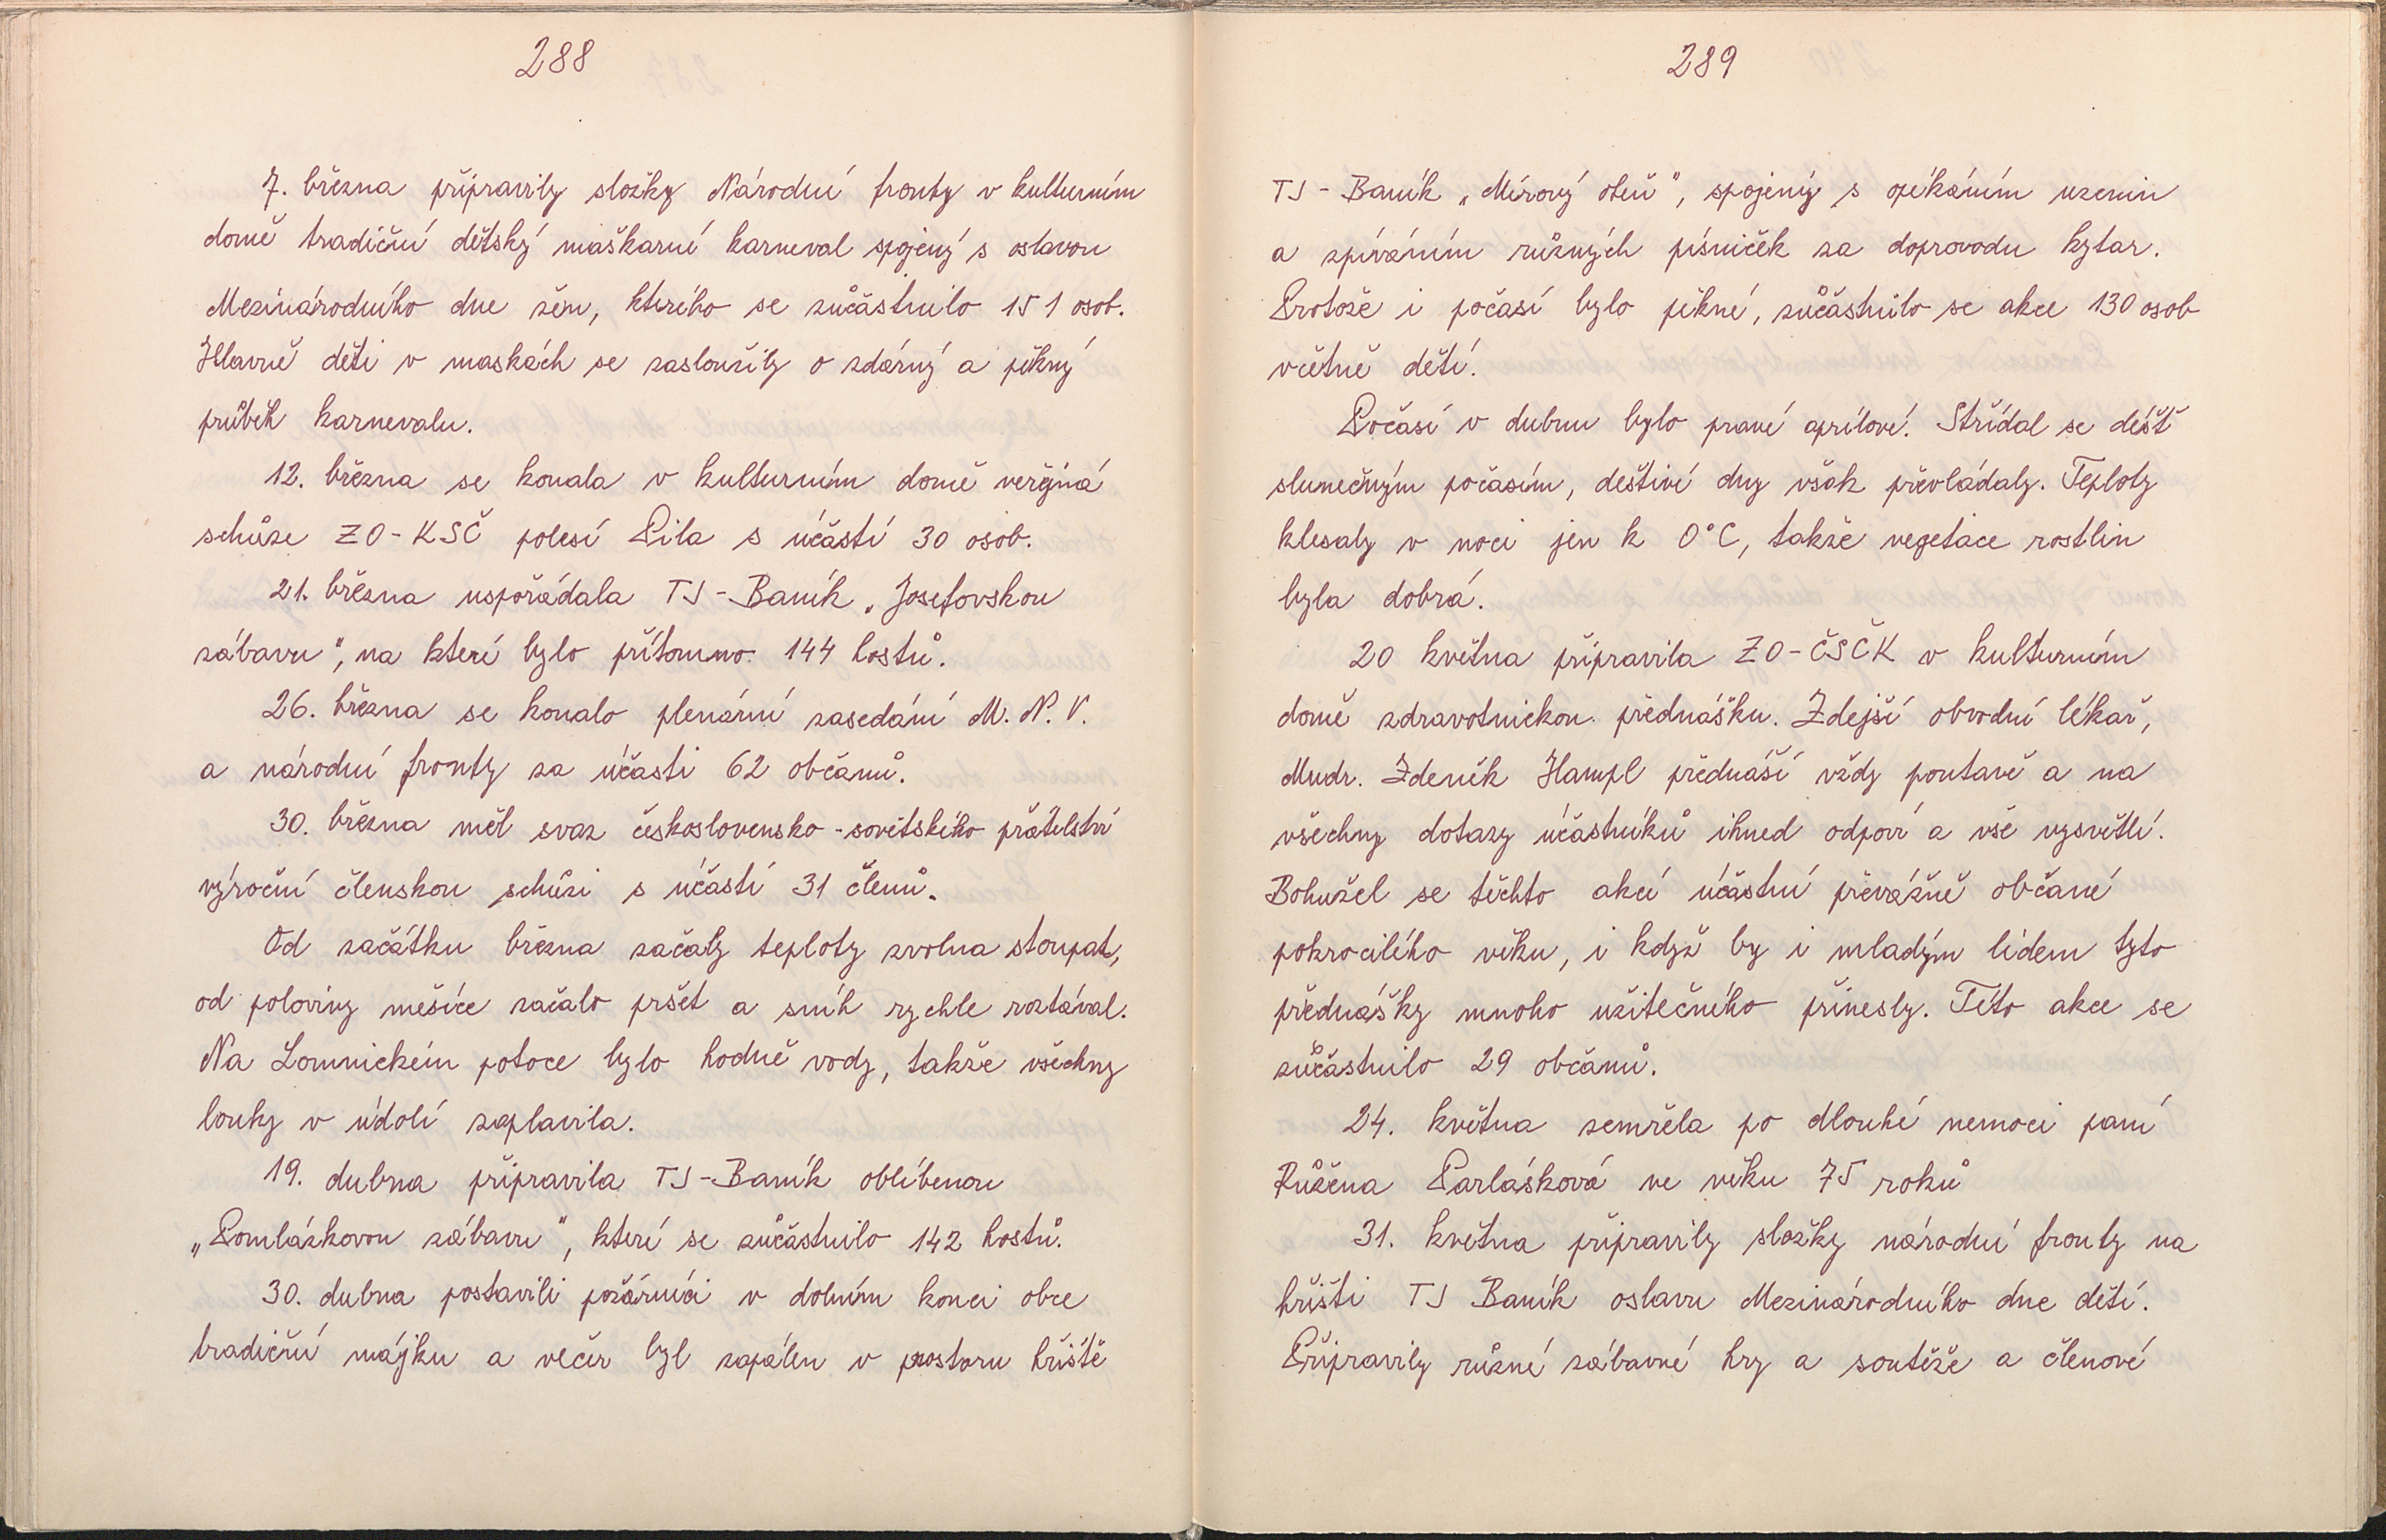 288
7. března připravily složky Národní fronty v kulturním
domě tradiční dětský maškarní karneval spojený s oslavou
Mezinárodního dne žen, kterého se zúčastnilo 151 osob.
Hlavně děti v maskách se zasloužily o zdárný a pěkný
průběh karnevalu.
12. března se konala v kulturním domě veřejná
schůze ZO-KSČ polesí Pila s účastí 30 osob.
21. března uspořádala TJ-Baník „Josefovskou
zábavu", na které bylo přítomno 144 hostů.
26. března se konalo plenární zasedání M. N. V.
a národní fronty za účasti 62 občanů.
30. března měl svaz československo-sovětského přátelství
výroční členskou schůzi s účastí 31 členů.
Od začátku března začaly teploty zvolna stoupat,
od poloviny měsíce začalo pršet a sníh rychle roztával.
Na Lomnickém potoce bylo hodně vody, takže všechny
louky v údolí zaplavila.
19. dubna připravila TJ-Baník oblíbenou
„Pomlázkovou zábavu", které se zúčastnilo 142 hostů.
30. dubna postavili požárníci v dolním konci obce
tradiční májku a večer byl zapálen v prostoru hřiště
289
TJ-Baník „Mírový oheň", spojený s opékáním uzenin
a zpíváním různých písniček za doprovodu kytar.
Protože i počasí bylo pěkné, zúčastnilo se akce 130 osob
včetně dětí.
Počasí v dubnu bylo pravé aprílové. Střídal se déšť
slunečným počasím, deštivé dny však převládaly. Teploty
klesaly v noci jen k 0°C, takže vegetace rostlin
byla dobrá.
20 května připravila ZO-ČSČK v kulturním
domě zdravotnickou přednášku. Zdejší obvodní lékař,
Mudr. Zdeněk Hampl přednáší vždy poutavě a na
všechny dotazy účastníků ihned odpoví a vše vysvětlí.
Bohužel se těchto akcí účastní převážně občané
pokročilého věku, i když by i mladým lidem tyto
přednášky mnoho užitečného přinesly. Této akce se
zúčastnilo 29 občanů.
24. května zemřela po dlouhé nemoci paní
Růžena Parlásková ve věku 75 roků
31. května připravily složky národní fronty na
hřišti TJ Baník oslavu Mezinárodního dne dětí.
Připravily různé zábavné hry a soutěže a členové